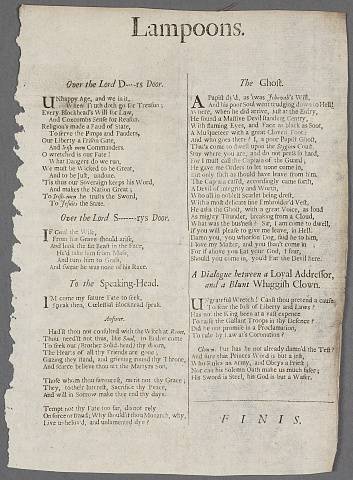 Lampoons.
Over the Lord D---rs Door.
UNhappy Age, and we in it,
When Truth doth go for Treason;
Every Blockhead's Will for Law,
And Coxcombs Sense for Reason.
Religion's made a Band of State,
To serve the Pimps and Panders,
Our Liberty a Prison Gate,
And Irish-men Commanders.
O wretched is our Fate!
What Dangers do we run,
We must be Wicked to be Great,
And to be just, undone.
'Tis thus our Sovereign keeps his Word,
And makes the Nation Great;
To Irish-men he trusts the Sword,
To Jesuits the State.
Over the Lord S------rys Door.
IF Cecil the Wise,
From his Grave should arise,
And look the fat Beast in the Face,
He'd take him from Mass,
And turn him to Grass,
And swear he was none of his Race.
To the Speaking-Head.
I'M come my future Fate to seek,
Speak then, Cœlestial Blockhead speak.
Answer.
Hadst thou not consulted with the Witch at Rome,
Thou needst not thus, like Saul, to Endor come
To seek our (Brother Solid-head) thy doom,
The Hearts of all thy Friends are gone,
Gazing they stand, and grieving round thy Throne,
And scarce believe thou art the Martyrs Son,
Those whom thou favourest, merit not thy Grace;
They, to their Interest, Sacrifice thy Peace,
And will in Sorrow make thee end thy days.
Tempt not thy Fate too far, do not rely
On force or fraud; Why shouldst thou Monarch, why,
Live unbelov'd, and unlamented dye?
The Ghost.
A Papist dy'd, as 'twas Jehovah's Will,
And his poor Soul went trudging down to Hell;
Where, when he did arrive, just at the Entry,
He found a Massive Devil standing Centry,
With flaming Eyes, and Face as black as Soot,
A Musqueteer with a great Cloven Foot;
and who goes there? I, a poor Papist Ghost,
That's come to dwell upon the Stygian Coast.
Stay where you are, and do not press so hard,
For I must call the Captain of the Guard;
He gave me Orders to let none come in,
but only such as should have leave from him.
The Captain call'd, accordingly came forth,
A Devil of Integrity and Worth,
Who all in noblest Scarlet being drest,
With a most delicate fine Embroider'd Vest,
He asks the Ghost, with a great Voice, as loud
As mighty Thunder, breaking from a Cloud,
What was the bus'ness? Sir, I am come to dwell,
if you will please to give me leave, in Hell.
Damn you, you whorson Dog, said he to him,
I love my Master, and you shan't come in
For if above you Eat your God, I fear,
Should you come in, you'd Eat the Devil here.
A Dialogue between a Loyal Addressor,
and a Blunt Whuggish Clown.
UNgrateful Wretch! Canst thou pretend a cause
To fear the loss of Liberty and Laws?
Has not the King been at a vast expence
To raise the Gallant Troops in thy Defence?
Did he not promise in a Proclamation,
To rule by Law at's Coronation?
Clown. But has he not already dam'd the Test?
And sure that Princes Word is but a jest,
Who Rules an Army, and Obeys a Priest;
Nor can his Solemn Oath make us much safer;
His Sword is Steel, his God is but a Wafer.
FINIS.